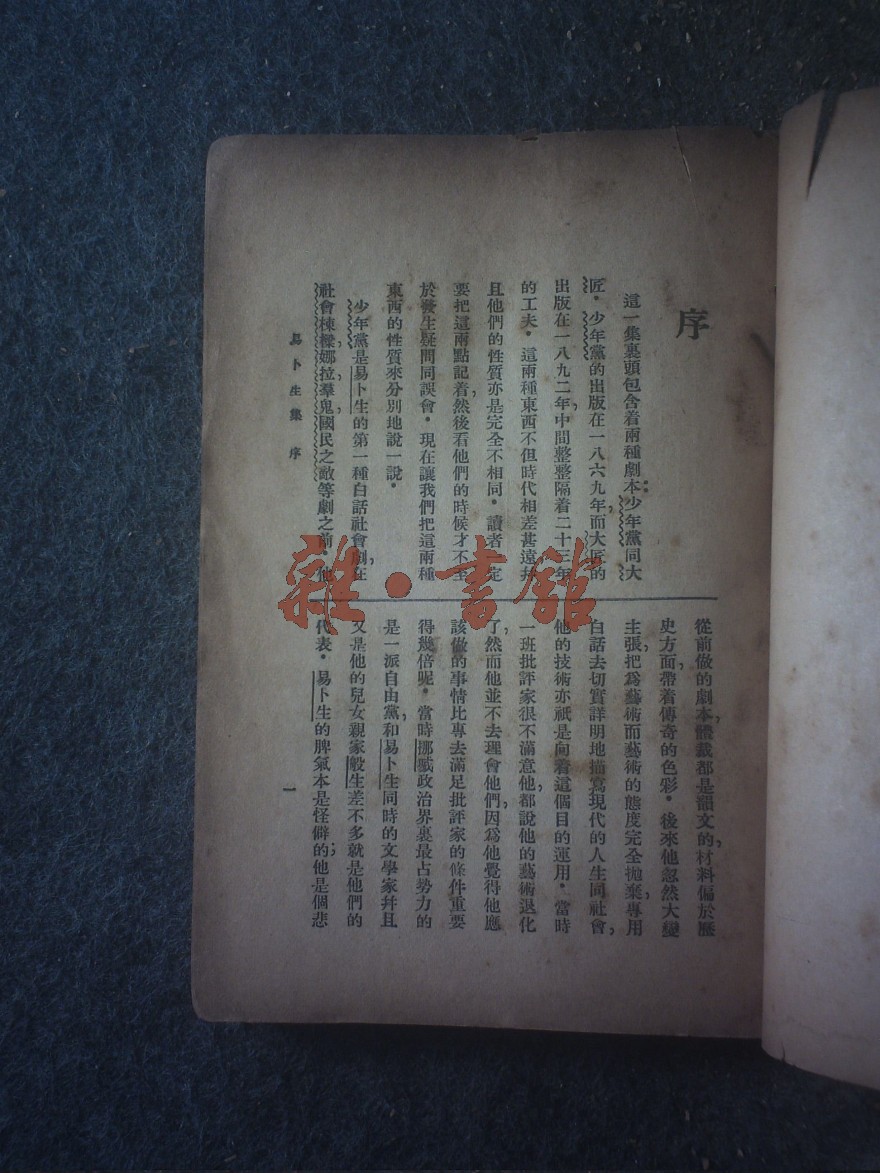 序
這一集裏頭包含着兩種劇本：少年黨同大
匠。少年黨的出版在一八六九年，而大匠的
出版在一八九二年，中間整整隔着二十三年
的工夫。這兩種東西不但時代相差甚遠，幷
且他們的性質亦是完全不相同。讀者一定
要把這兩點記着，然後看他們的時候才不至
於發生疑問同誤會。現在讓我們把這兩種
東西的性質來分別地說一說。
少年黨是易卜生的第一種白話社會劇，在
社會棟樑，娜拉，羣鬼，國民之敵等劇之前。他
從前做的劇本，體裁都是韻文的，材料偏於歷
史方面，帶着傳奇的色彩。後來他忽然大變
主張，把爲藝術而藝術的態度完全拋棄，專用
白話去切實詳明地描寫現代的人生同社會，
他的技術亦祇是向着這個目的運用。當時
一班批評家很不滿意他，都說他的藝術退化
了，然而他並不去理會他們，因爲他覺得他應
該做的事情比專去滿足批評家的條件重要
得幾倍呢。當時挪威政治界裏最占勢力的
是一派自由黨，和易卜生同時的文學家幷且
又是他的兒女親家般生差不多就是他們的
代表。易卜生的脾氣本是怪僻的；他是個悲
易卜生集 序
一
雜·書館